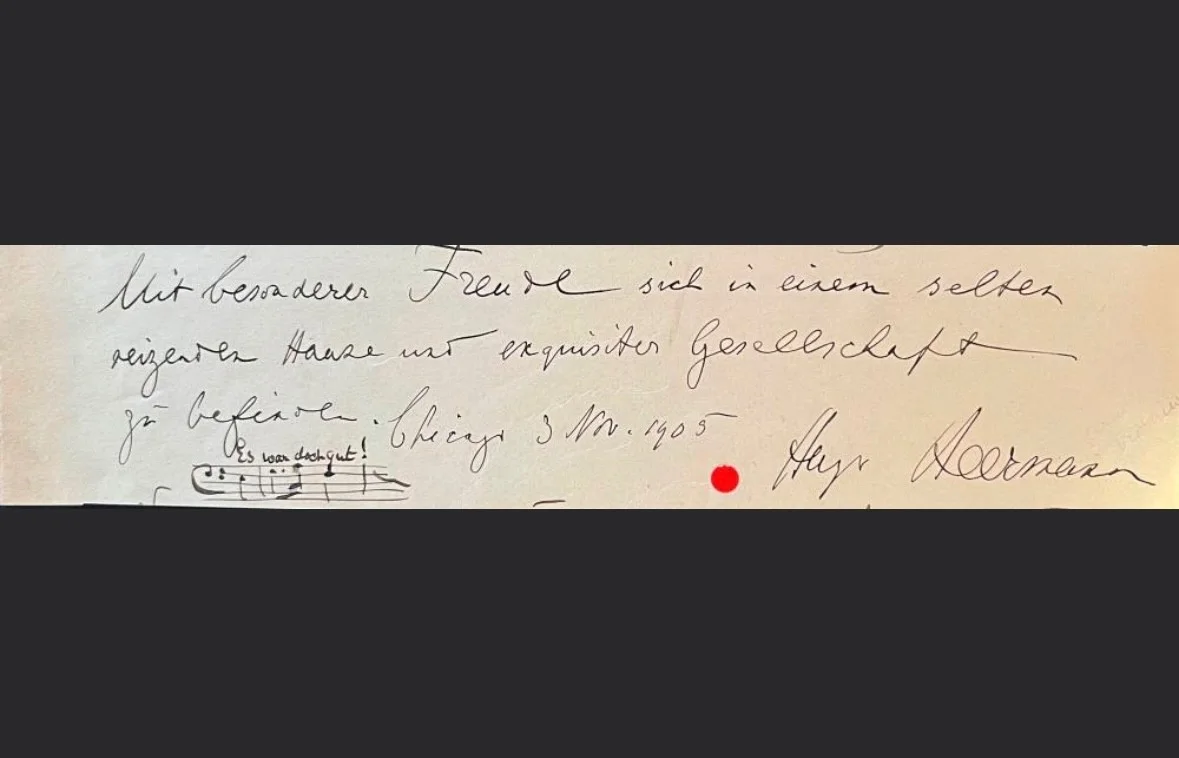 Mit besonderer Freude sich in einem selten
reizenden Hause und exquisiter Gesellschaft
zu befinden. Chicago 3 Nov. 1905
Hugo Heermann
Es war doch gut!